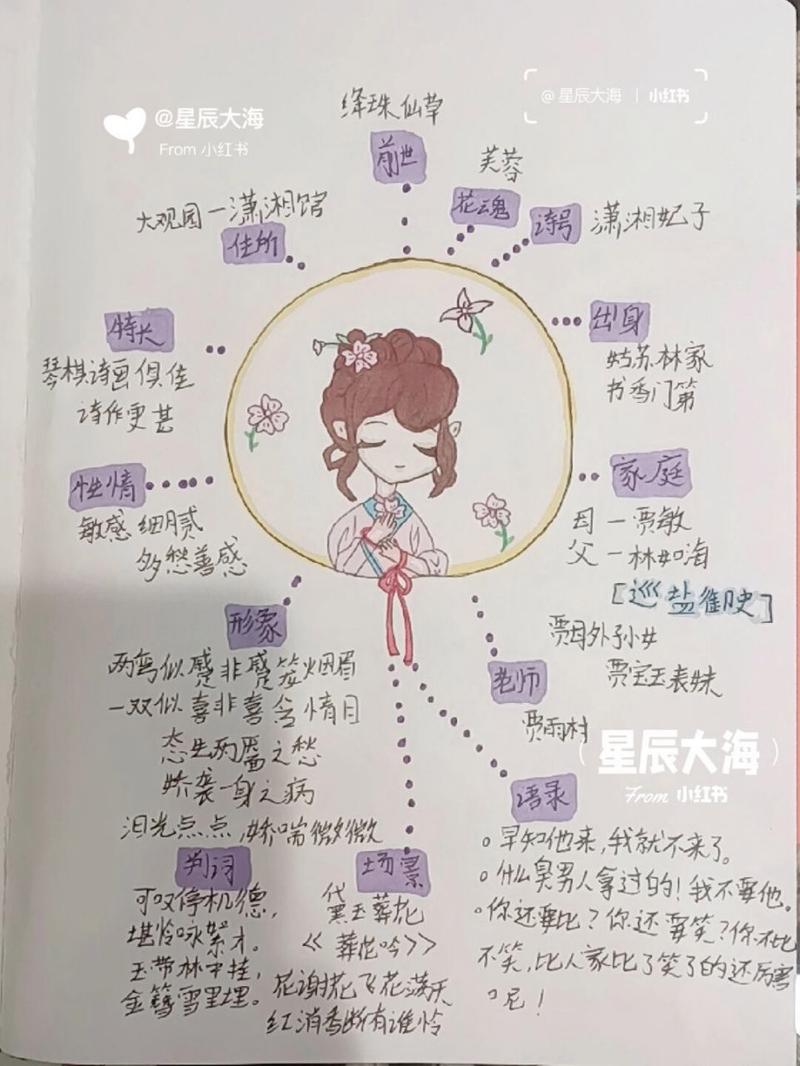 @星辰大海
From 小红书
@ 星辰大海 | 小红书
绛珠仙草
前世
芙蓉
花魂
诗号
潇湘妃子
大观园—潇湘馆
住所
特长
琴棋诗画俱佳
诗作更甚
出身
姑苏林家
书香门第
性情
敏感 细腻
多愁善感
家庭
母—贾敏
父—林如海
[巡盐御史]
贾母外孙女
贾宝玉表妹
形象
两弯似蹙非蹙笼烟眉
一双似喜非喜含情目
态生两靥之愁
娇袭一身之病
泪光点点,娇喘微微
老师
贾雨村
星辰大海
From 小红书
语录
早知他来,我就不来了。
什么臭男人拿过的!我不要他。
你还要比?你还要笑?你不比
不笑,比人家比了笑了的还厉害
呢!
判词
可叹停机德,
堪怜咏絮才。
玉带林中挂,
金簪雪里埋。
场景
黛玉葬花
《葬花吟》
花谢花飞花满天
红消香断有谁怜